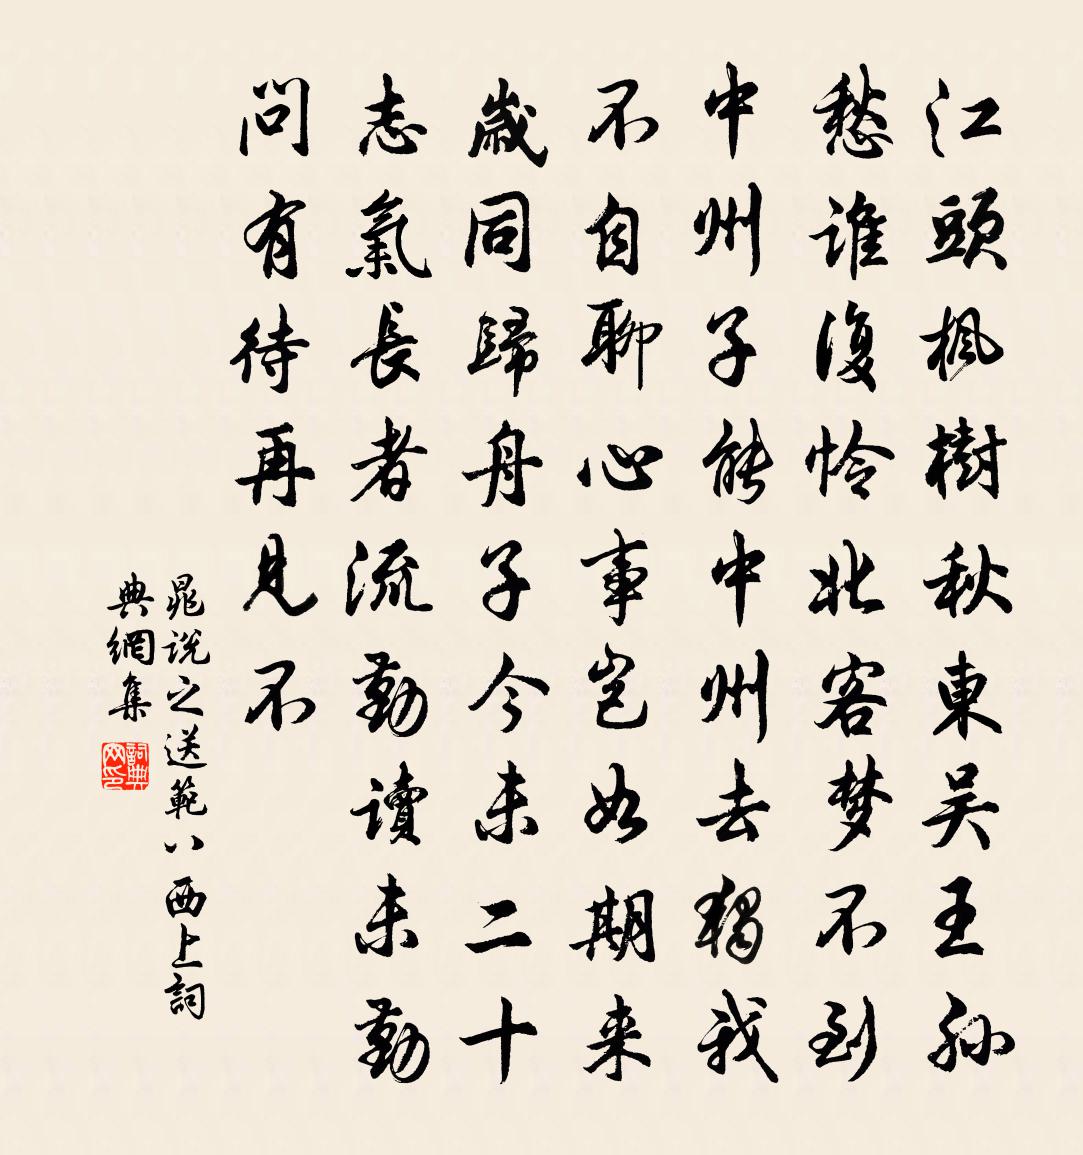 江頭楓樹秋東吴王孙
愁谁復怜北客梦不到
中州子能中州去獨我
不自聊心事岂如期来
歲同歸舟子今未二十
志氣長者流勤讀未勤
問有待再見不
晁说之送範八西上詞
典網集
詞典网印